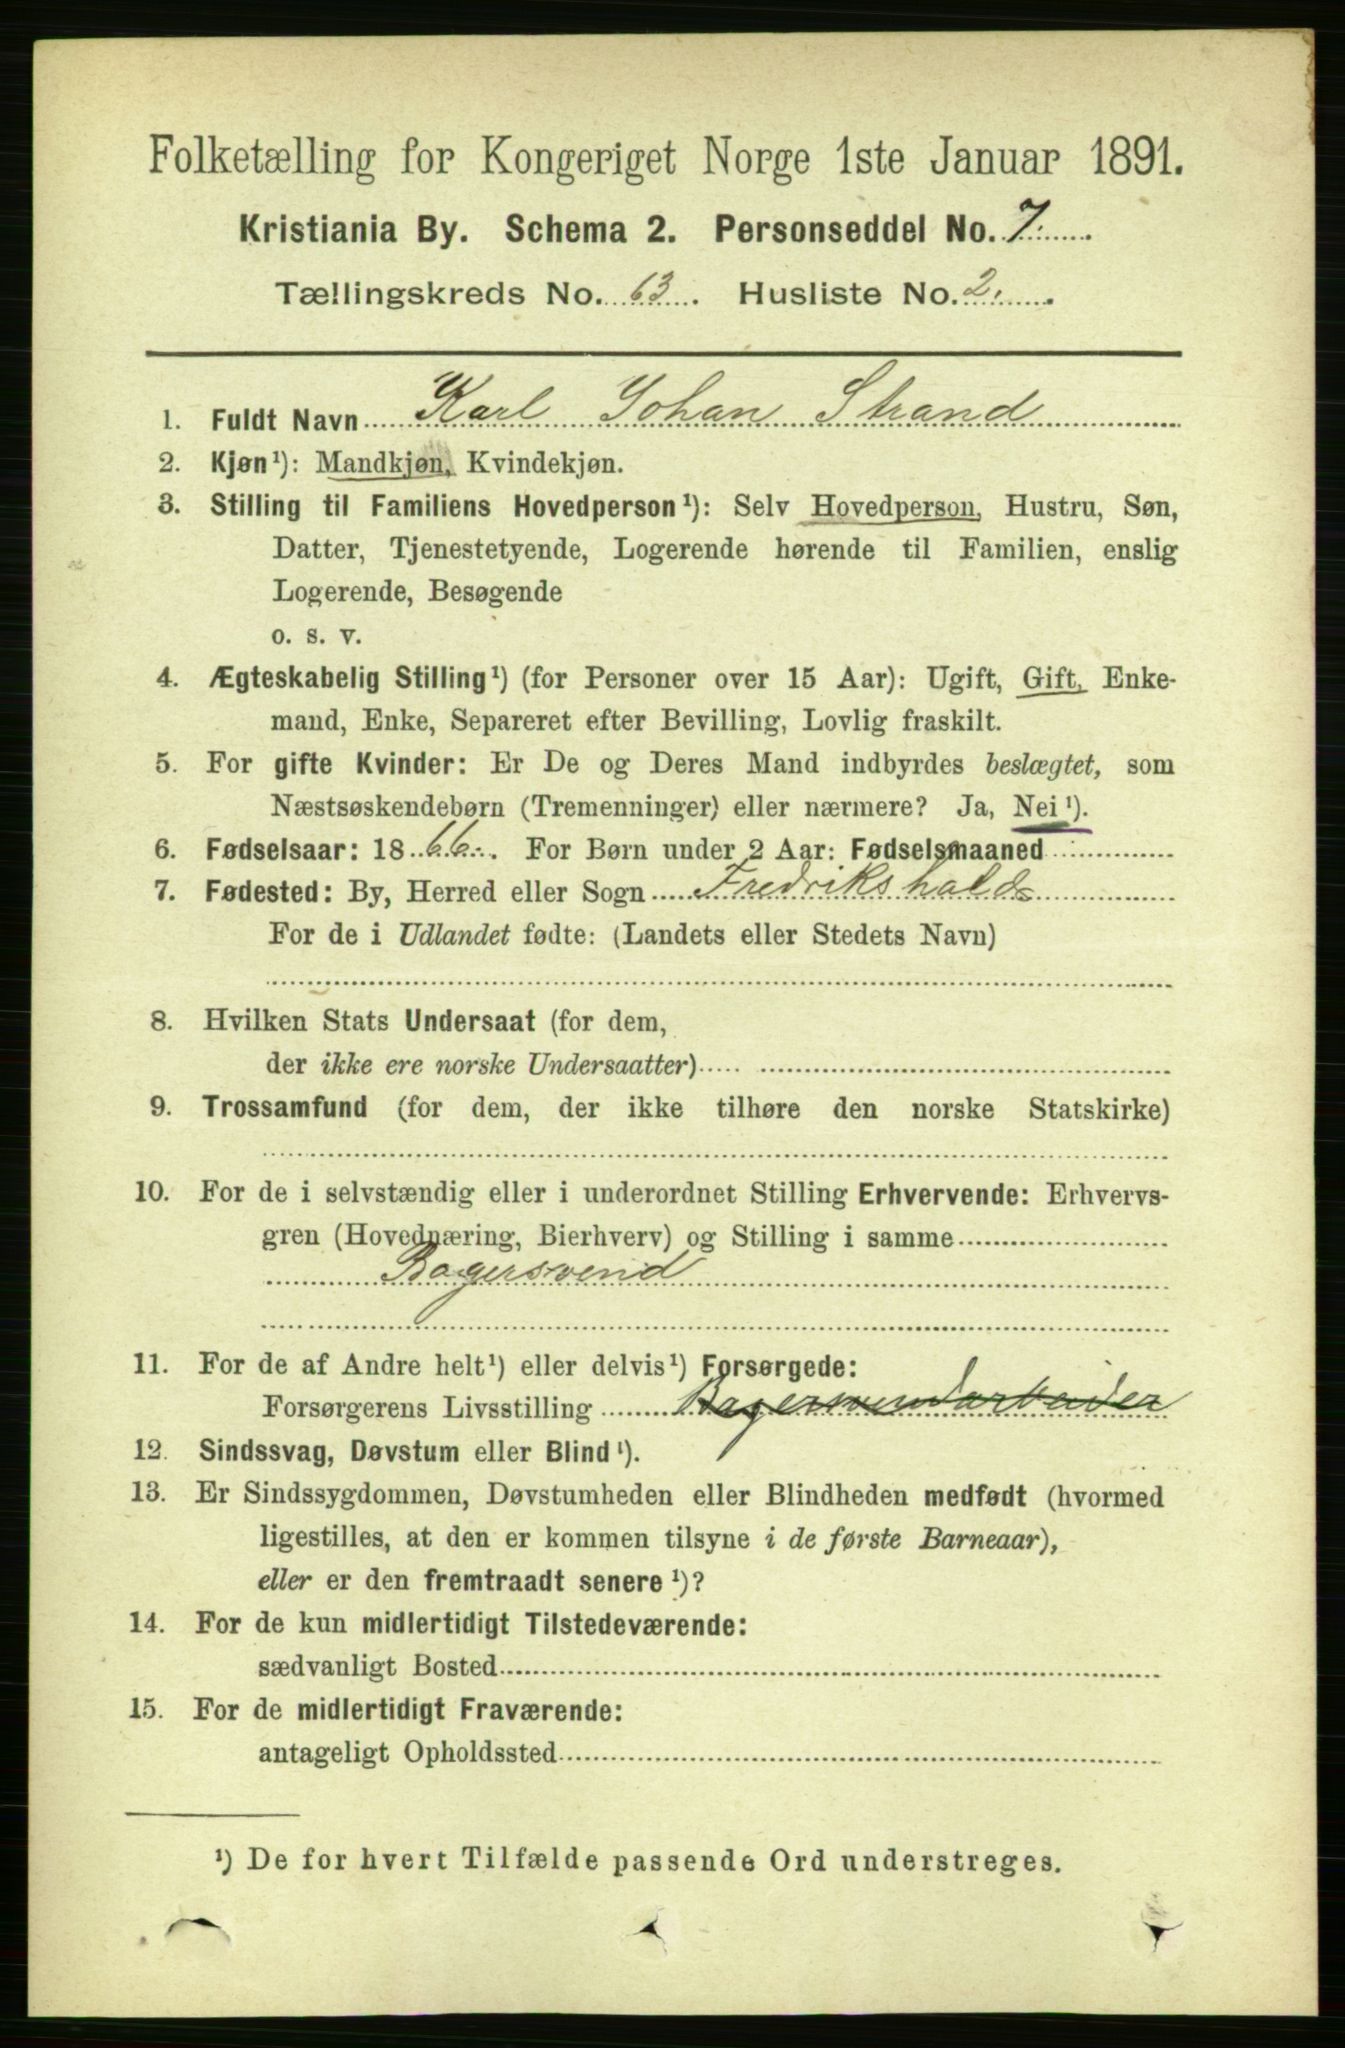 Folketælling for Kongeriget Norge 1ste Januar 1891.
Kristiania By. Schema 2. Personseddel No. 7.
Tællingskreds No. 63. Husliste No. 2.
1. Fuldt Navn Karl Johan Strand
2. Kjøn¹): Mandkjøn, Kvindekjøn.
3. Stilling til Familiens Hovedperson¹): Selv Hovedperson, Hustru, Søn,
Datter, Tjenestetyende, Logerende hørende til Familien, enslig
Logerende, Besøgende
o. s. v.
4. Ægteskabelig Stilling¹) (for Personer over 15 Aar): Ugift, Gift, Enke-
mand, Enke, Separeret efter Bevilling, Lovlig fraskilt.
5. For gifte Kvinder: Er De og Deres Mand indbyrdes beslægtet, som
Næstsøskendebørn (Tremenninger) eller nærmere? Ja, Nei¹).
6. Fødselsaar: 1866. For Børn under 2 Aar: Fødselsmaaned
7. Fødested: By, Herred eller Sogn Fredrikshald
For de i Udlandet fødte: (Landets eller Stedets Navn)
8. Hvilken Stats Undersaat (for dem,
der ikke ere norske Undersaatter)
9. Trossamfund (for dem, der ikke tilhøre den norske Statskirke)
10. For de i selvstændig eller i underordnet Stilling Erhvervende: Erhvervs-
gren (Hovednæring, Bierhverv) og Stilling i samme
Bagersvend
11. For de af Andre helt¹) eller delvis¹) Forsørgede:
Forsørgerens Livsstilling Bagersvendarbeider
12. Sindssvag, Døvstum eller Blind¹).
13. Er Sindssygdommen, Døvstumheden eller Blindheden medfødt (hvormed
ligestilles, at den er kommen tilsyne i de første Barneaar),
eller er den fremtraadt senere¹)?
14. For de kun midlertidigt Tilstedeværende:
sædvanligt Bosted
15. For de midlertidigt Fraværende:
antageligt Opholdssted
¹) De for hvert Tilfælde passende Ord understreges.